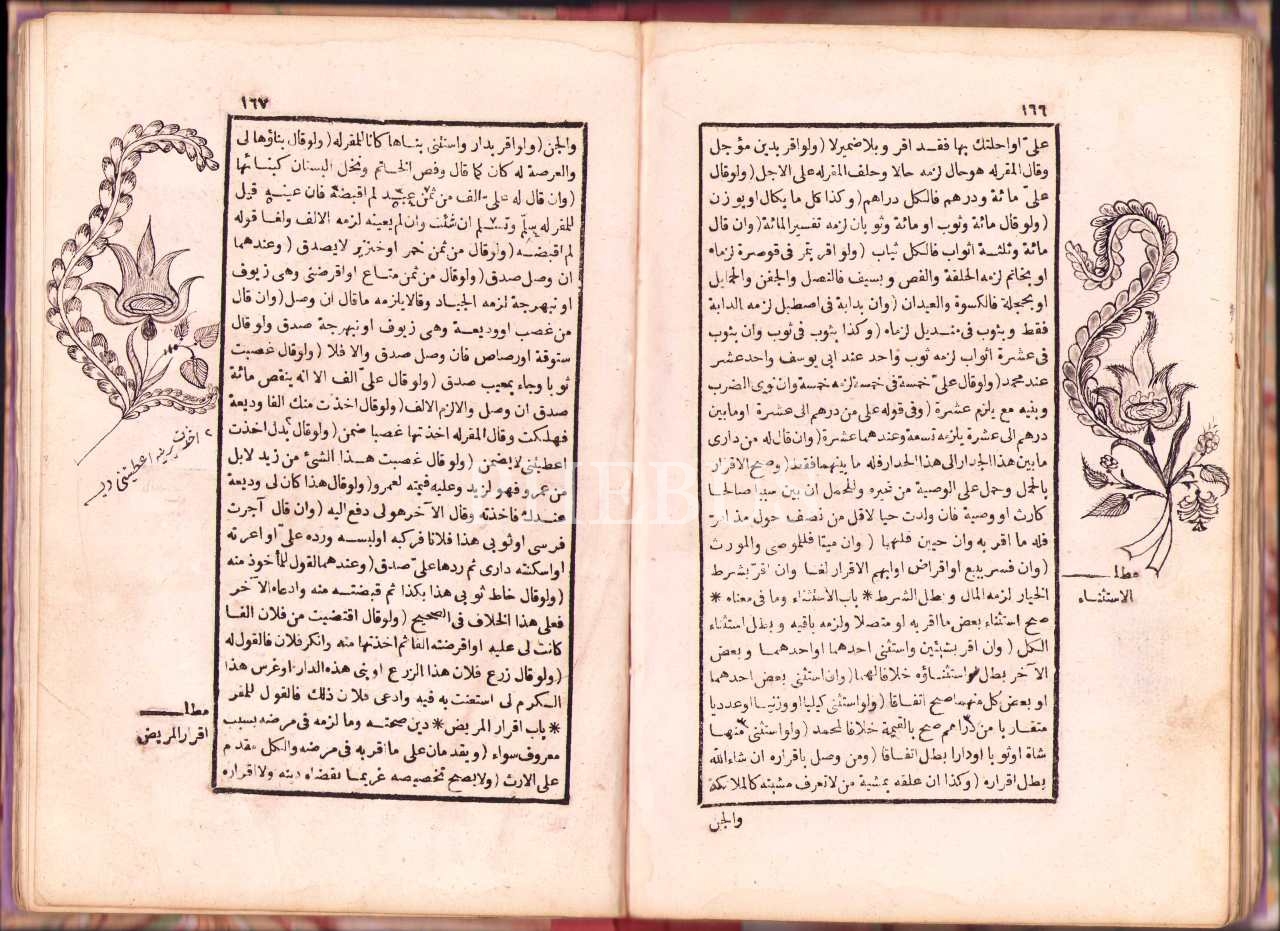 ١٦٦
علىّ اواحلتك بها فقد اقر وبلا ضمير لا (ولو اقر بدين مؤجل
وقال المقرله هو حال لزمه حالا وحلف المقرله على الاجل (ولوقال
علىّ مائة ودرهم فالكل دراهم (وكذا كل ما يكال او يوزن
(ولو قال مائة وثوب او مائة وثوبان لزمه تفسير المائة (وان قال
مائة وثلثة اثواب فالكل ثياب (ولو اقر بتمر فى قوصرة لزماه
او بخاتم لزمه الحلقة والفص وبسيف فالنصل والجفن والحمايل
او بحجلة فالكسوة والعيدان (وان بدابة فى اصطبل لزمه الدابة
فقط وبثوب فى منديل لزماه (وكذا بثوب فى ثوب وان بثوب
فى عشرة اثواب لزمه ثوب واحد عند ابى يوسف واحد عشر
عند محمد (ولوقال علىّ خمسة فى خمسة لزمه خمسة وان نوى الضرب
وبنيه مع يلزم عشرة (وفى قوله على من درهم الى عشرة او مابين
درهم الى عشرة يلزمه تسعة وعندهما عشرة (وان قال له من دارى
ما بين هذا الجدار الى هذا الجدار فله ما بينهما فقط (وصح الاقرار
بالحمل وحمل على الوصية من غيره وللحمل ان بين سببا صالحا
كارث او وصية فان ولدت حيا لاقل من نصف حول مذ اقر
فله ما اقر به وان حيين فلهما (وان ميتا فللموصى والمورث
(وان فسر ببيع او اقراض او ابهم الاقرار لغا وان اقر بشرط
الخيار لزمه المال وبطل الشرط * باب الاستثناء وما فى معناه *
صح استثناء بعض ما اقر به او متصلا ولزمه باقيه وبطل استثناء
الكل (وان اقر بشيئين واستثنى احدهما او احدهما وبعض
الآخر بطل استثناؤه خلافا لهما (وان استثنى بعض احدهما
او بعض كل منهما صح اتفاقا (ولو استثنى كيليا او وزنيا او عدديا
متقاربا من دراهم صح بالقيمة خلافا لمحمد (ولو استثنى منها
شاة او ثوبا او دارا بطل اتفاقا (ومن وصل باقراره ان شاء الله
بطل اقراره (وكذا ان علقه بمشية من لا تعرف مشيته كالملائكة
والجن
مطلـــ
الاستثناء
١٦٧
والجن (ولو اقر بدار واستثنى بناءها كانا للمقر له (ولو قال بناؤها لى
والعرصة له كان كما قال وفص الخاتم ونخل البستان كبنائها
(وان قال له علىّ الف من ثمن عبد لم اقبضه فان عينه قيل
للمقر له سلم وتسلم ان شئت وان لم يعينه لزمه الالف ولغا قوله
لم اقبضه (ولوقال من ثمن خمر او خنزير لا يصدق (وعندهما
ان وصل صدق (ولوقال من ثمن متاع او اقرضنى وهى زيوف
او نبهرجة لزمه الجياد وقالا يلزمه ما قال ان وصل (وان قال
من غصب او وديعة وهى زيوف او نبهرجة صدق ولو قال
ستوقة او رصاص فان وصل صدق والا فلا (ولوقال غصبت
ثوبا وجاء بمعيب صدق (ولو قال علىّ الف الا انه ينقص مائة
صدق ان وصل والا لزم الالف (ولوقال اخذت منك الفا وديعة
فهلكت وقال المقرله اخذتها غصبا ضمن (ولوقال بدل اخذت
اعطيتنى لا يضمن (ولو قال غصبت هذا الشئ من زيد لا بل
من عمرو فهو لزيد وعليه قيمته لعمرو (ولوقال هذا كان لى وديعة
عندك فاخذته وقال الآخر هو لى دفع اليه (وان قال آجرت
فرسى او ثوبى هذا فلانا فركبه او لبسه ورده علىّ او اعرته
او اسكنته دارى ثم ردها علىّ صدق (وعندهما القول للمأخوذ منه
(ولوقال خاط ثوبى هذا بكذا ثم قبضته منه وادعاه الآخر
فعلى هذا الخلاف فى الصحيح (ولوقال اقتضيت من فلان الفا
كانت لى عليه او اقرضته الفا ثم اخذتها منه وانكر فلان فالقول له
(ولوقال زرع فلان هذا الزرع او بنى هذه الدار او غرس هذا
الكرم لى استعنت به فيه وادعى فلان ذلك فالقول للمقر
* باب اقرار المريض * دين صحته وما لزمه فى مرضه بسبب
معروف سواء (ويقدمان على ما اقر به فى مرضه والكل مقدم
على الارث (ولا يصح تخصيصه غريما بقضاء دينه ولا اقراره
٢ اخذت يرينه اعطيتنى دير
مطلـــ
اقرار المريض